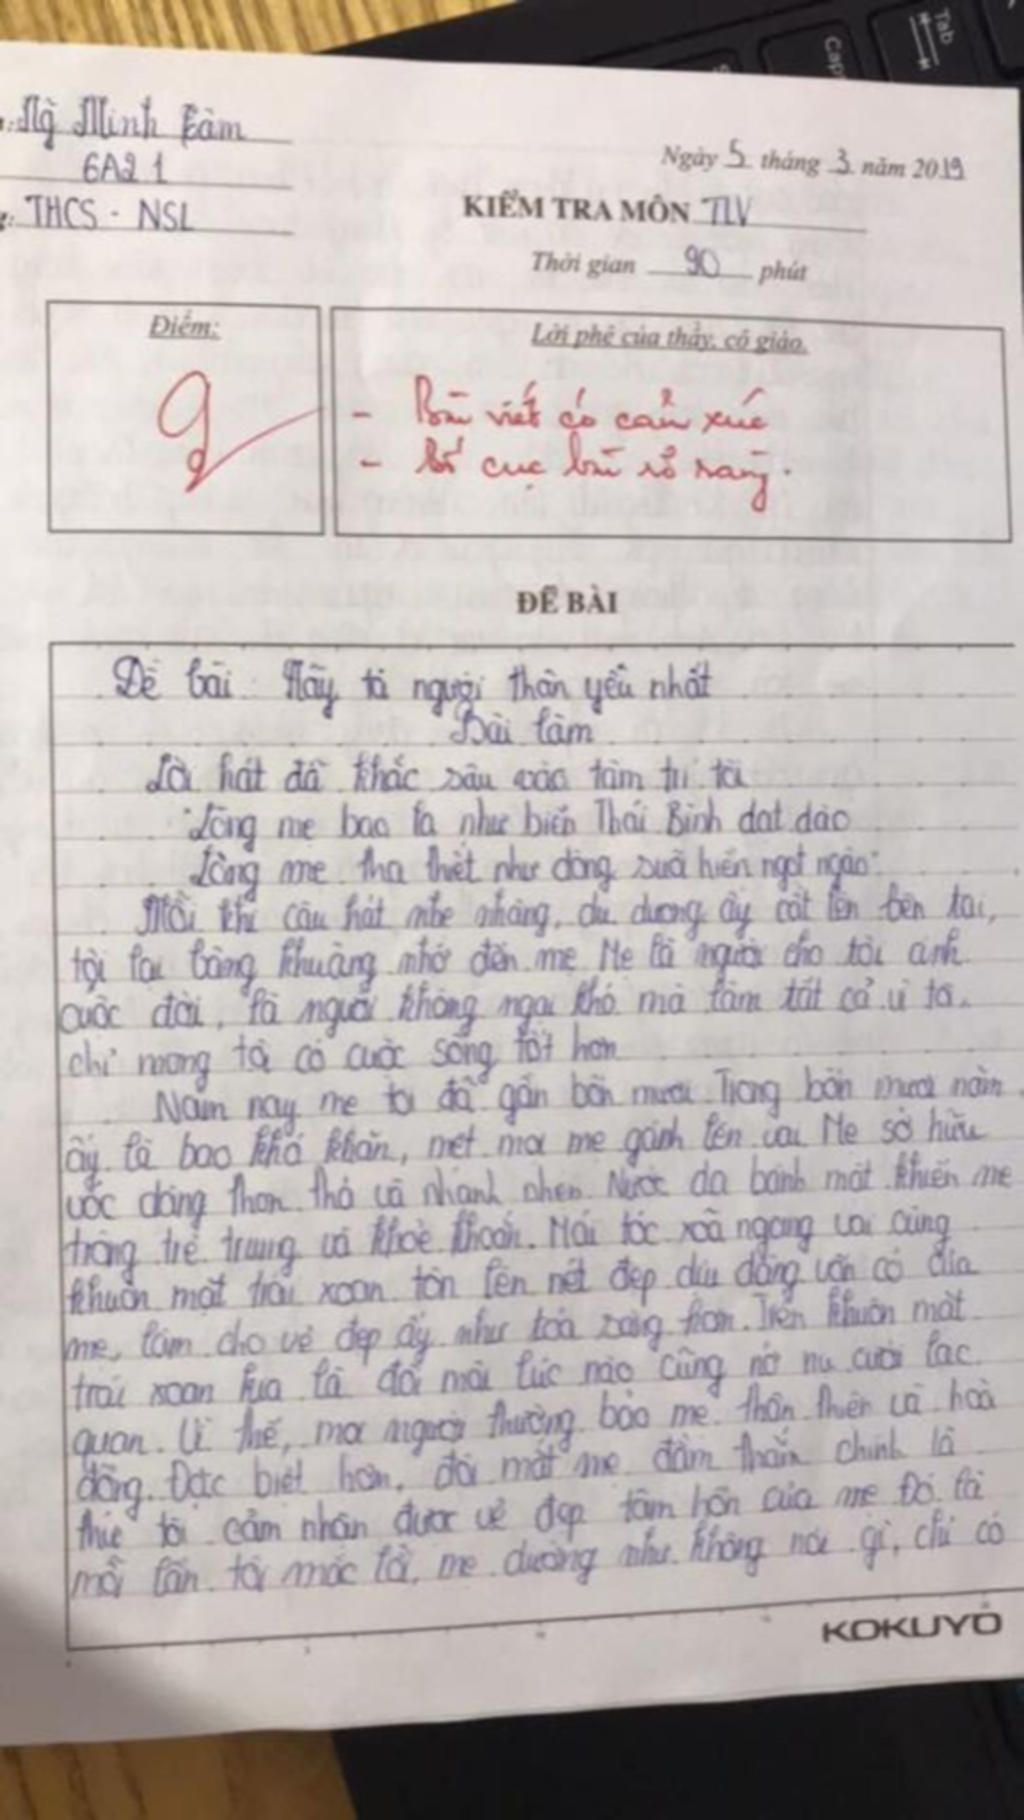 Minh Lâm
6A2 1
THCS - NSL
Ngày 5 tháng 3 năm 2019
KIỂM TRA MÔN TLV
Thời gian 90 phút
Điểm:
Lời phê của thầy, cô giáo.
9
- Bài viết có cảm xúc
- Bố cục bài rõ ràng.
ĐỀ BÀI
Đề bài: Hãy tả người thân yêu nhất
Bài làm
Lời hát đã khắc sâu vào tâm trí tôi
"Lòng mẹ bao la như biển Thái Bình dạt dào
Lòng mẹ tha thiết như dòng suối hiền ngọt ngào"
Mỗi khi câu hát nhẹ nhàng, du dương ấy cất lên bên tai,
tôi lại bâng khuâng nhớ đến mẹ. Mẹ là người cho tôi ánh
cuộc đời, là người không ngại khó mà làm tất cả vì tôi,
chỉ mong tôi có cuộc sống tốt hơn
Năm nay mẹ tôi đã gần bốn mươi. Trong bốn mươi năm
ấy là bao khó khăn, mệt mỏi mẹ gánh lên vai. Mẹ sở hữu
vóc dáng thon thả và nhanh nhẹn. Nước da bánh mật khiến mẹ
trông trẻ trung và khoẻ khoắn. Mái tóc xoã ngang vai cùng
khuôn mặt trái xoan tôn lên nét đẹp dịu dàng vốn có của
mẹ, làm cho vẻ đẹp ấy như toả sáng hơn. Trên khuôn mặt
trái xoan kia là đôi môi lúc nào cũng nở nụ cười lạc
quan. Vì thế, mọi người thường bảo mẹ thân thiện và hoà
đồng. Đặc biệt hơn, đôi mắt mẹ đằm thắm chính là
thứ tôi cảm nhận được vẻ đẹp tâm hồn của mẹ. Đó là
mỗi lần tôi mắc lỗi, mẹ dường như không nói gì, chỉ có
KOKUYO